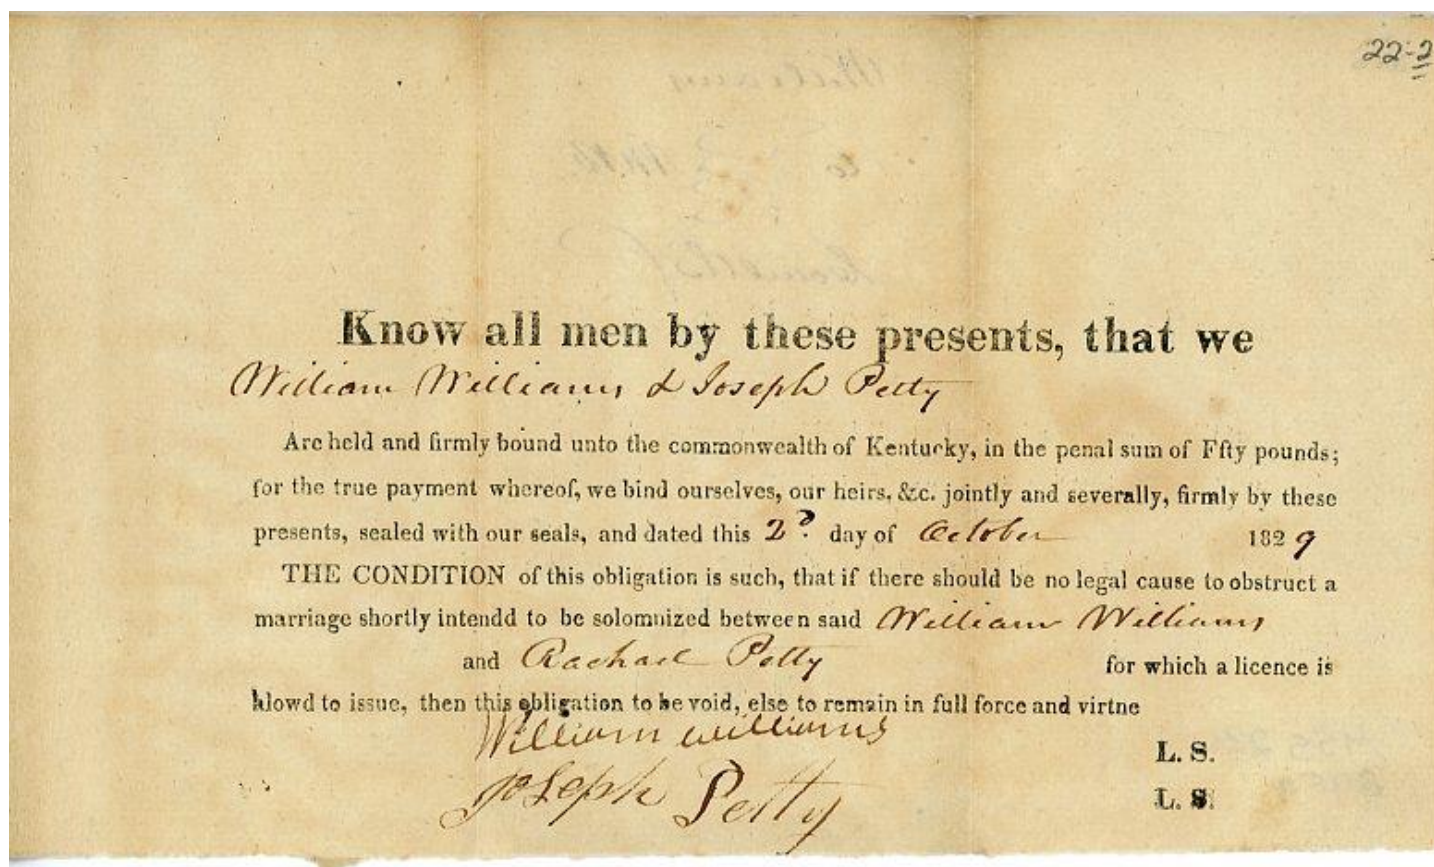 22-2
Know all men by these presents, that we
William Williams & Joseph Petty
Are held and firmly bound unto the commonwealth of Kentucky, in the penal sum of Ffty pounds;
for the true payment whereof, we bind ourselves, our heirs, &c. jointly and severally, firmly by these
presents, sealed with our seals, and dated this 2d. day of October 1829
THE CONDITION of this obligation is such, that if there should be no legal cause to obstruct a
marriage shortly intendd to be solomnized between said William Williams
and Rachael Petty for which a licence is
alowd to issue, then this obligation to be void, else to remain in full force and virtne
William Williams L. S.
Joseph Petty L. S.